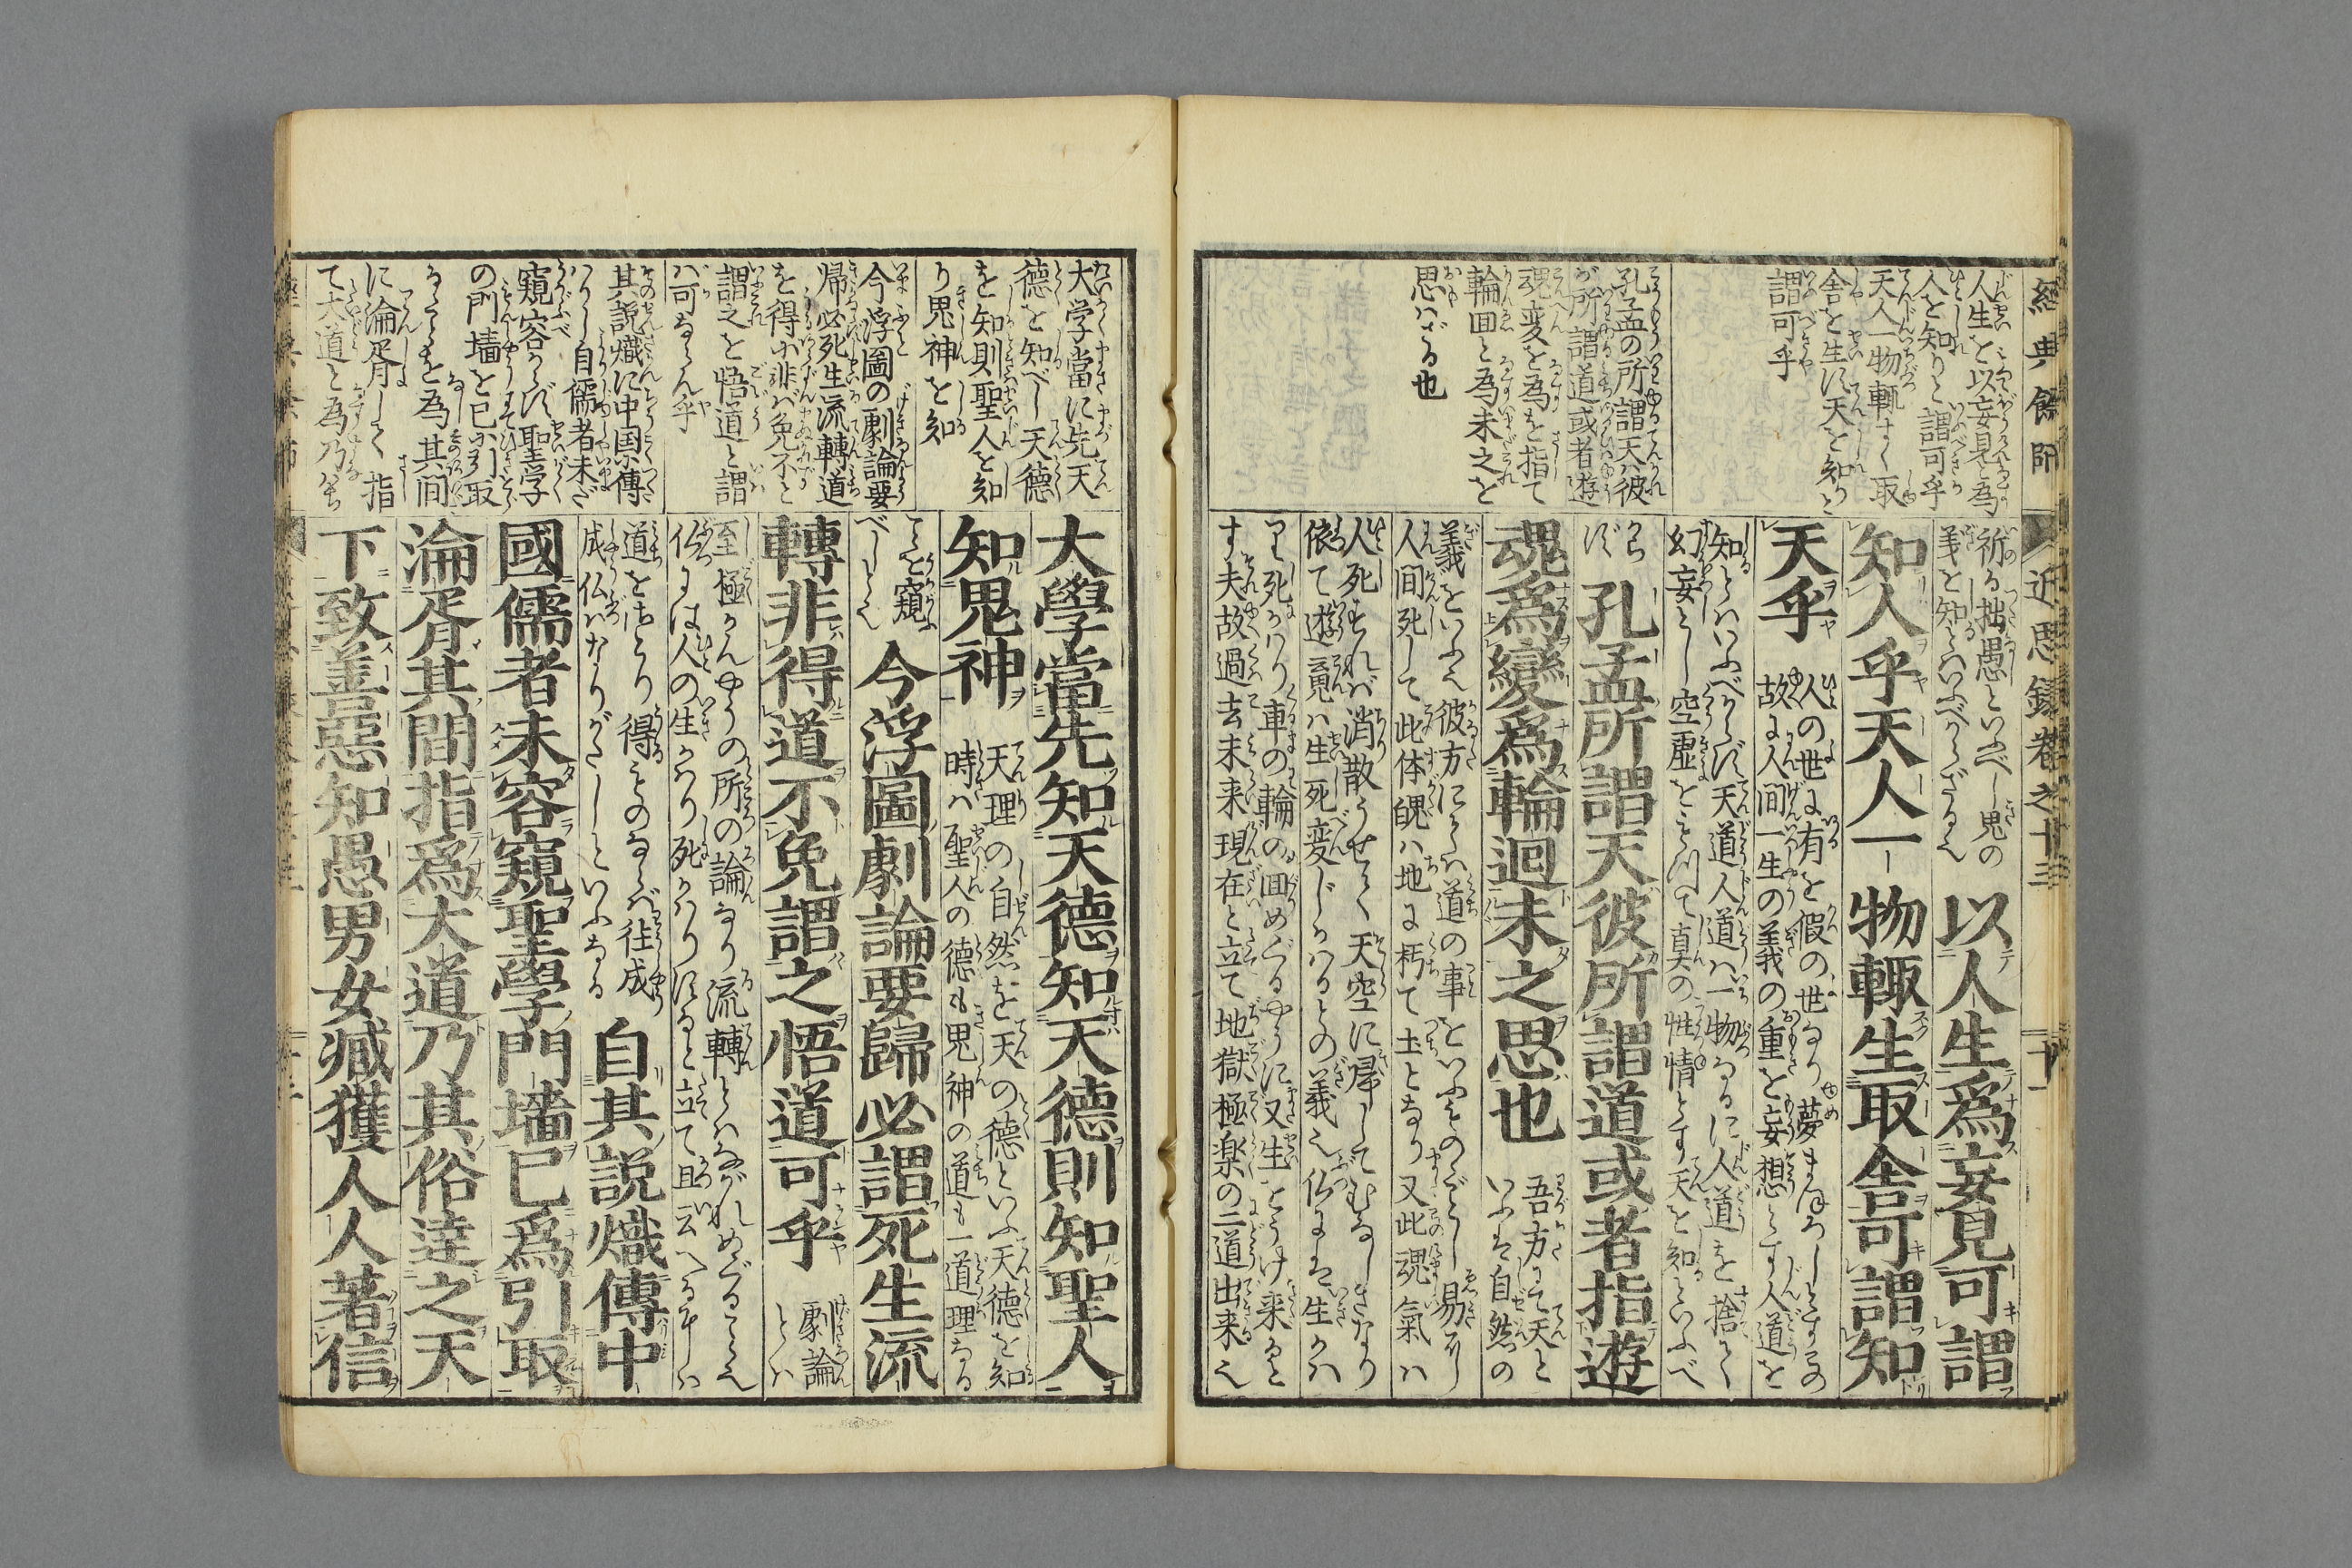 經典餘師
近思録巻之十三
十一
人生を以妄見と為
人を知りと謂可乎
天人一物輒すく取
舎を生に天を知りと
謂可乎
孔孟の所謂天ハ彼
が所謂道或者遊
魂変を為を指て
輪回と為未之を
思ハざる也
祈る拙愚といふべし鬼の
義を知といふべからざるん
以人生爲妄見可謂
知人乎天人一物輙生取舎可謂知
天乎
人の世に有を假の世なり夢まぼろしとするの
故に人間一生の義の重を妄想とす人道を
知るとハいふべからず天道人道ハ一物なるに人道を捨て
幻妄とし空虚を以て真の性情とす天を知るといふべ
からず
孔孟所謂天彼所謂道或者指遊
魂爲變爲輪迴未之思也
吾方にて天と
いふは自然の
義をいふ彼方にてハ道の事をいふものぞし易に
人間死して此体魄ハ地に朽て土となり又此魂氣ハ
人死すれバ消散うせて天空に帰してむなしきなり
依て遊䰟ハ生死変じかハるとの義之仏にハ生かハ
り死かハり車の輪の回めぐるやうに又生をうけ来ると
す夫故過去未来現在と立て地獄極楽の二道出来之
大学當に先天
徳を知べし天徳
を知則聖人を知
り鬼神を知
今浮圖の劇論要
帰必死生流轉道
を得に非バ免不と
謂之を悟道と謂
ハ可ならん乎
其説熾に中国に傳
りてより自儒者未だ
窺容からず聖学
の門墻を已に引取
なさるを為其間
に淪胥して指
て大道と為乃其
大學當先知天德知天德則知聖人
知鬼神
天理の自然を天の徳といふ天徳を知
時ハ聖人の徳も鬼神の道も一道理なる
を窺ふ
べしとぞ
今浮圖劇論要歸必謂死生流
轉非得道不免謂之悟道可乎
劇論
とハ
至極かんやうの所の論なり流轉とハながれめぐること之
仏には人の生かハり死かハりになると立て且云へるやハ
道をさとり得ものならバ往成
成仏ハなりがたしといふなる
自其説熾傳中
國儒者未容窺聖學門墻已爲引取
淪胥其間指爲大道乃其俗達之天
下致善惡知愚男女臧獲人人著信